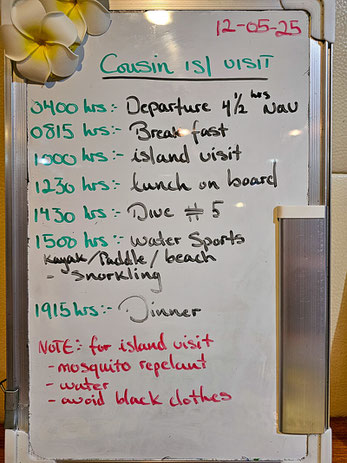 12-05-25
Cousin isl visit
0400 hrs:- Departure 4½ hrs Nav
0815 hrs:- Breakfast
1000 hrs:- island visit
1230 hrs:- Lunch on board
1430 hrs:- Dive # 5
1500 hrs:- Water Sports
Kayak/Paddle/beach
- Snorkling
1915 hrs:- Dinner
NOTE: for island visit
- mosquito repelant
- water
- avoid black clothes